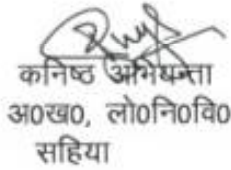 कनिष्ठ अभियन्ता
अ०ख०, लो०नि०वि०
सहिया